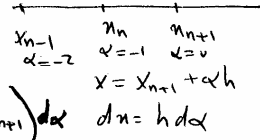 x_{n-1} x_n x_{n+1}
α=-2 α=-1 α=0
x = x_{n+1} + αh
n+1) dα dx = h dα